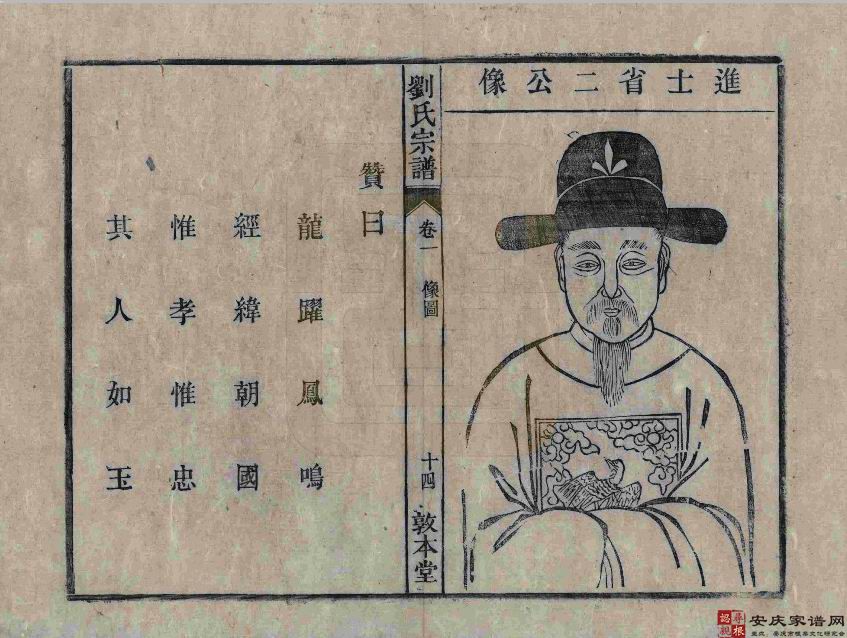 進士省二公像
劉氏宗譜
卷一
像圖
十四
敦本堂
贊曰
龍躍鳳鳴
經緯朝國
惟孝惟忠
其人如玉
尋根
安庆家谱网